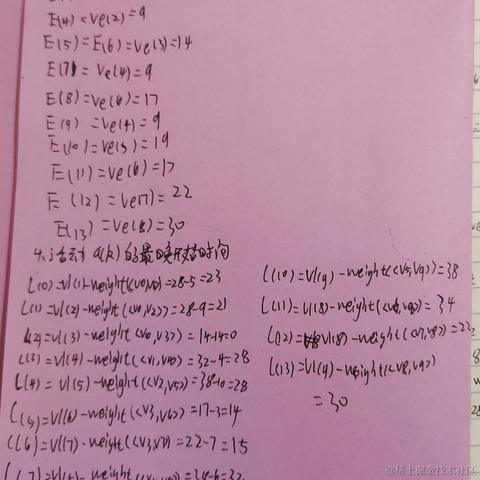 E(4)=Ve(2)=9
E(5)=E(6)=Ve(3)=14
E(7)=Ve(4)=9
E(8)=Ve(6)=17
E(9)=Ve(4)=9
E(10)=Ve(5)=19
E(11)=Ve(6)=17
E(12)=Ve(7)=22
E(13)=Ve(8)=30
4.活动a(k)的最晚开始时间
L(0)=Vl(1)-weight(<v0,v1>)=28-5=23
L(1)=Vl(2)-weight(<v0,v2>)=28-9=21
L(2)=Vl(3)-weight(<v0,v3>)=14-14=0
L(3)=Vl(4)-weight(<v1,v4>)=32-4=28
L(4)=Vl(5)-weight(<v2,v5>)=38-10=28
L(5)=Vl(6)-weight(<v3,v6>)=17-3=14
L(6)=Vl(7)-weight(<v3,v7>)=22-7=15
L(10)=Vl(9)-weight(<v5,v9>)=38
L(11)=Vl(8)-weight(<v6,v8>)=34
L(12)=Vl(8)-weight(<v7,v8>)=22
L(13)=Vl(9)-weight(<v8,v9>)
=30
@稀土掘金技术社区